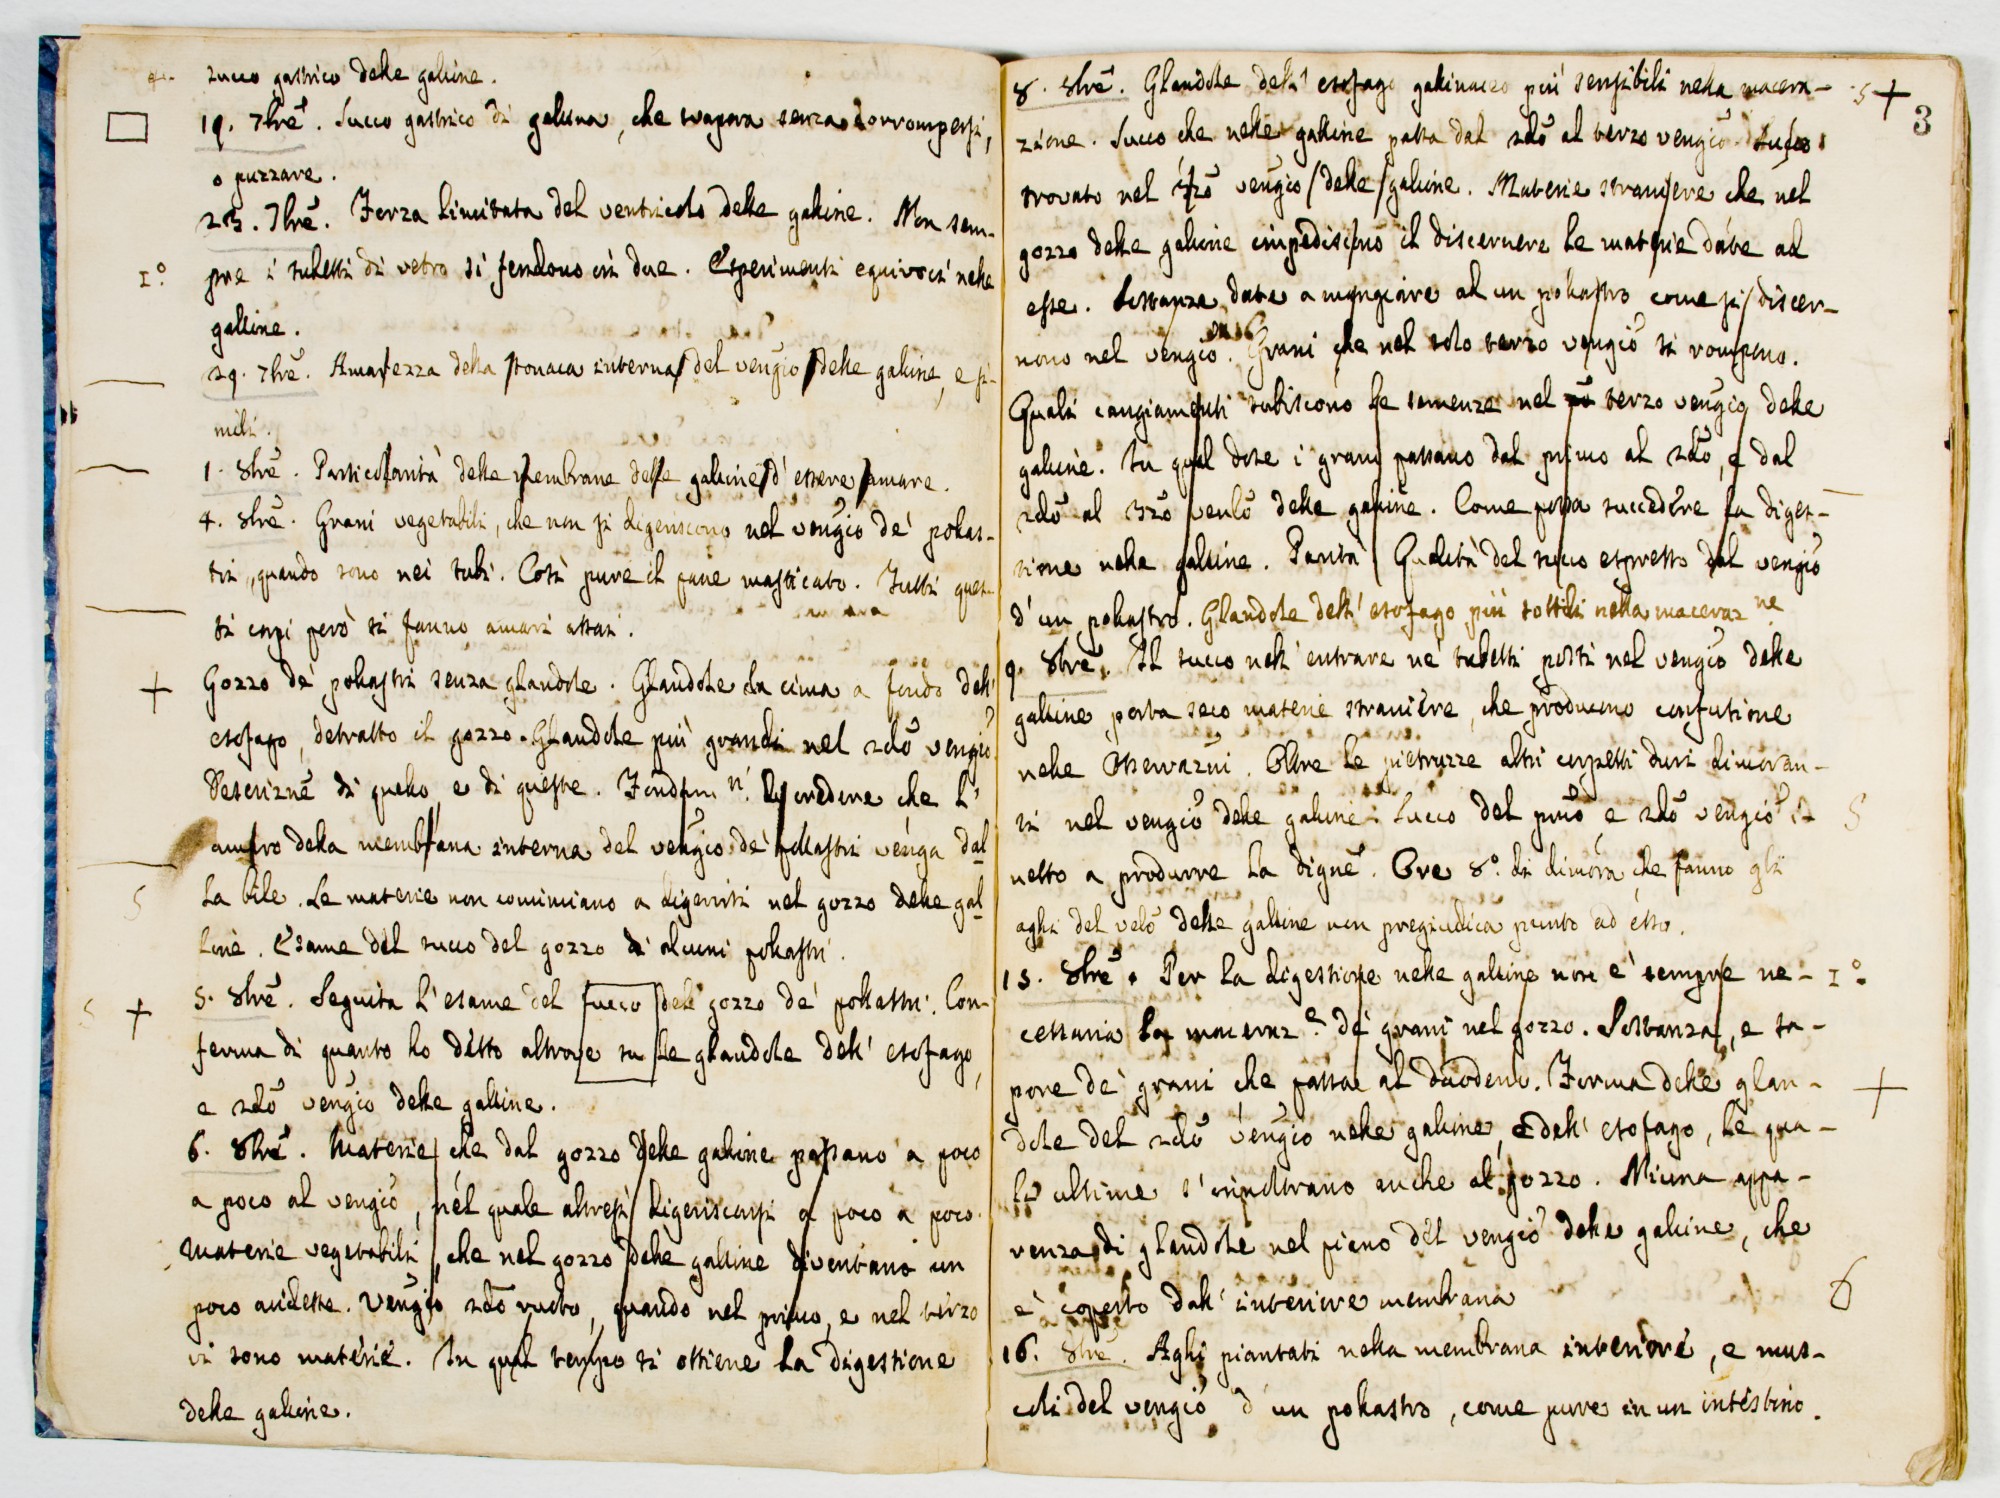 succo gastrico delle galline.
19. 7bre. Succo gastrico di gallina, che svapora senza corrompersi,
o puzzare.
23. 7bre. Forza limitata del ventricolo delle galline. Non sem-
1° pre i tubetti di vetro si fendono in due. Esperimenti equivoci nelle
galline.
29. 7bre. Amarezza della tonaca interna del vengio delle galline, e si-
mili.
1. 8bre. Particolarità delle membrane delle galline d'essere amare.
4. 8bre. Grani vegetabili, che non si digeriscono nel vengio de' pollas-
tri, quando sono nei tubi. Così pure il pane masticato. Tutti ques-
ti corpi però si fanno amari assai.
+ Gozzo de' pollastri senza glandole. Glandole da cima a fondo dell'
esofago, detratto il gozzo. Glandole più grandi nel 2do vengio.
Descrizne di quello, e di queste. Fondam.ti di credere che l'
amaro della membrana interna del vengio de' pollastri venga dal
5 la bile. Le materie non cominciano a digerirsi nel gozzo delle gal
line. Esame del succo del gozzo di alcuni pollastri.
5 + 5. 8bre. Seguita l'esame del succo del gozzo de' pollastri. Con-
ferma di quanto ho detto altrove su le glandole dell' esofago,
e 2do vengio delle galline.
6. 8bre. Materie che dal gozzo delle galline passano a poco
a poco al vengio, nel quale altresì digerisconsi a poco a poco.
Materie vegetabili, che nel gozzo delle galline diventano un
poco acidette. Vengio 2do vuoto, quando nel primo, e nel terzo
vi sono materie. In qual tempo si ottiene la digestione
delle galline.
3
8. 8bre. Glandole dell' esofago gallinaceo più sensibili nella macera- 5 +
zione. Succo che nelle galline passa dal 2do al terzo vengio. Succo
trovato nel 3zo vengio delle galline. Materie straniere che nel
gozzo delle galline impediscono il discernere le materie date ad
esse. Sostanze date a mangiare ad un pollastro come si discer-
nono nel vengio. Grani che nel solo terzo vengio si rompono.
Quali cangiamenti subiscono le semenze nel terzo vengio delle
galline. In qual dose i grani passano dal primo al 2do, e dal
2do al 3zo delle galline. Come possa succedere la diges-
tione nelle galline. Parità Qualità del succo espresso dal vengio
d'un pollastro. Glandole dell' esofago più sottili nella maceraz.ne
9. 8bre. Il succo nell' entrare ne' tubetti posti nel vengio delle
galline porta seco materie straniere, che producono confusione
nelle Osservazni. Oltre le pietruzze altri corpetti duri dimoran-
ti nel vengio delle galline. Succo del pmo e 2do vengio i- 5
netto a produrre la digne. Ore 8° di dimora che fanno gli
aghi del delle galline non pregiudica punto ad esso.
15. 8bre. Per la digestione nelle galline non è sempre ne- 1°
cessaria la maceraz.e de' grani nel gozzo. Sostanza, e sa-
pore de' grani che passa al duodeno. Forma delle glan- +
dole del 2do vengio nelle galline, e dell' esofago, le qua-
li ultime s'inoltrano anche al gozzo. Niuna appa-
renza di glandole nel pieno del vengio delle galline, che
è coperto dall' interiore membrana 6
16. 8bre. Aghi piantati nella membrana interiore, e mus-
coli del vengio d'un pollastro, come pure in un intestino.